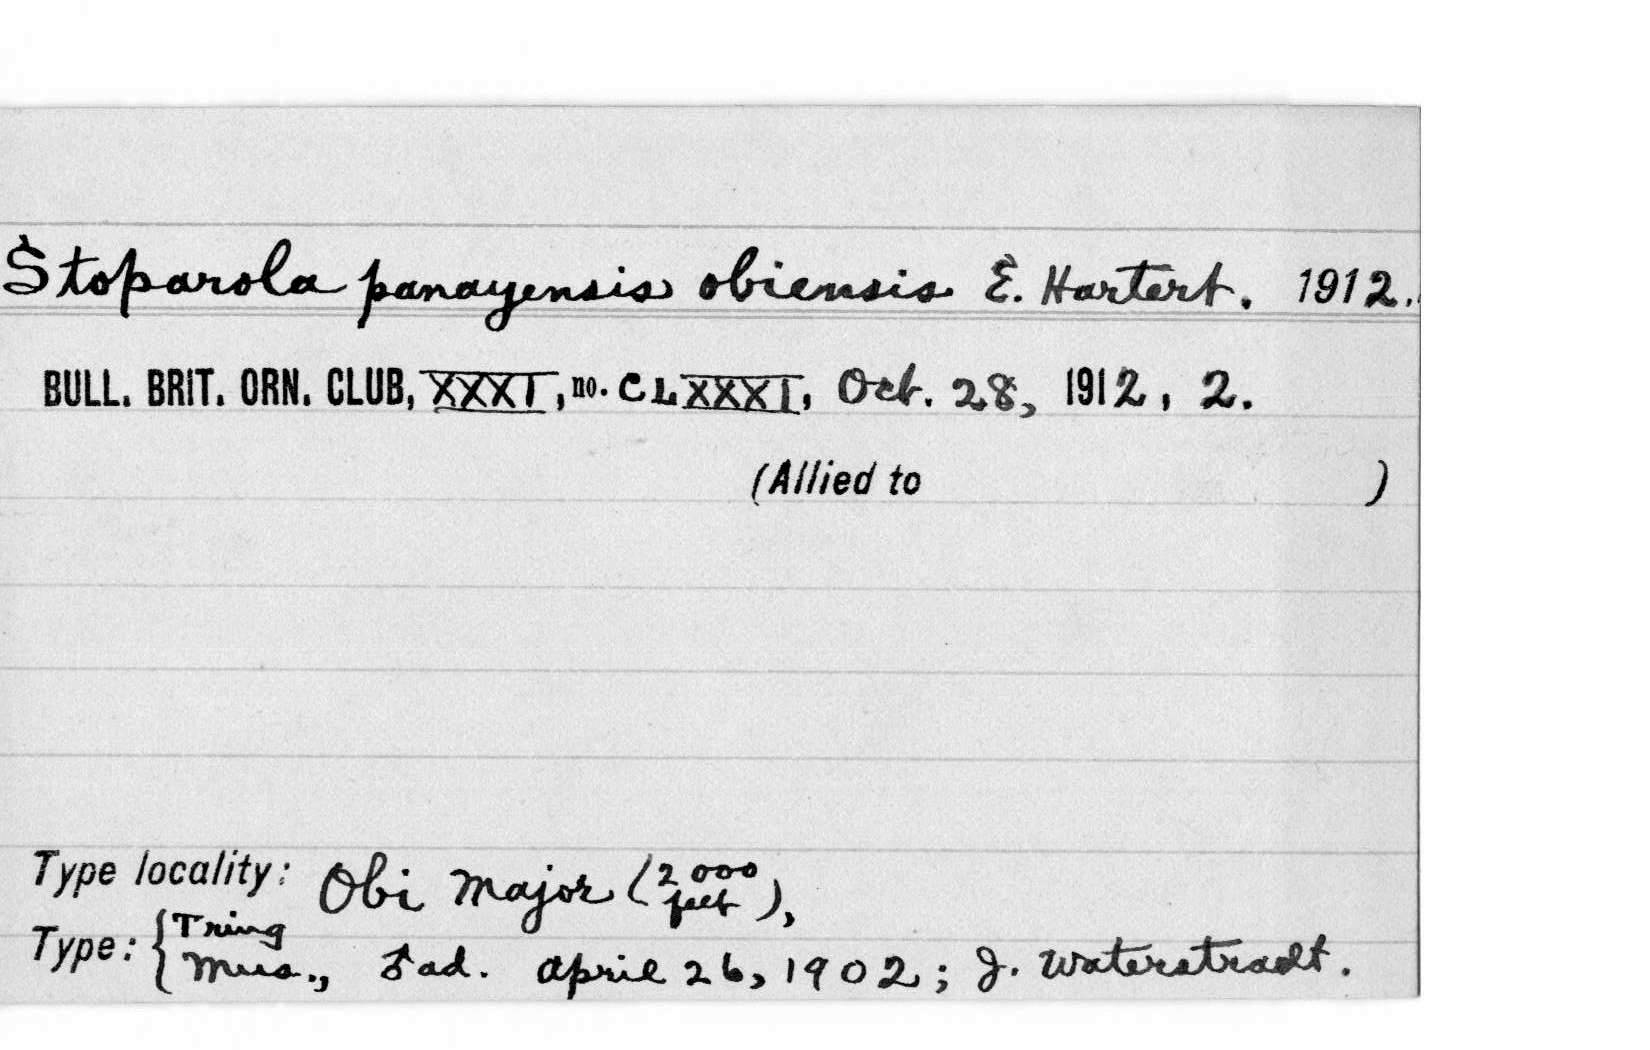 Stoparola panayensis obiensis E. Hartert. 1912.
BULL. BRIT. ORN. CLUB, XXXI, no. CLXXXI, Oct. 28, 1912, 2.
(Allied to )
Type locality: Obi Major (2000 feet),
Type: {Tring Mus., ad. April 26, 1902; J. Waterstradt.